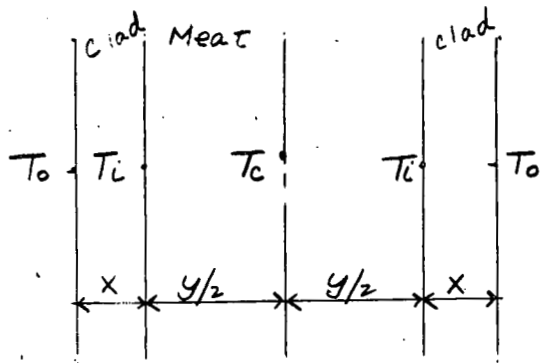 clad Meat clad
To Ti Tc Ti To
x y/2 y/2 x